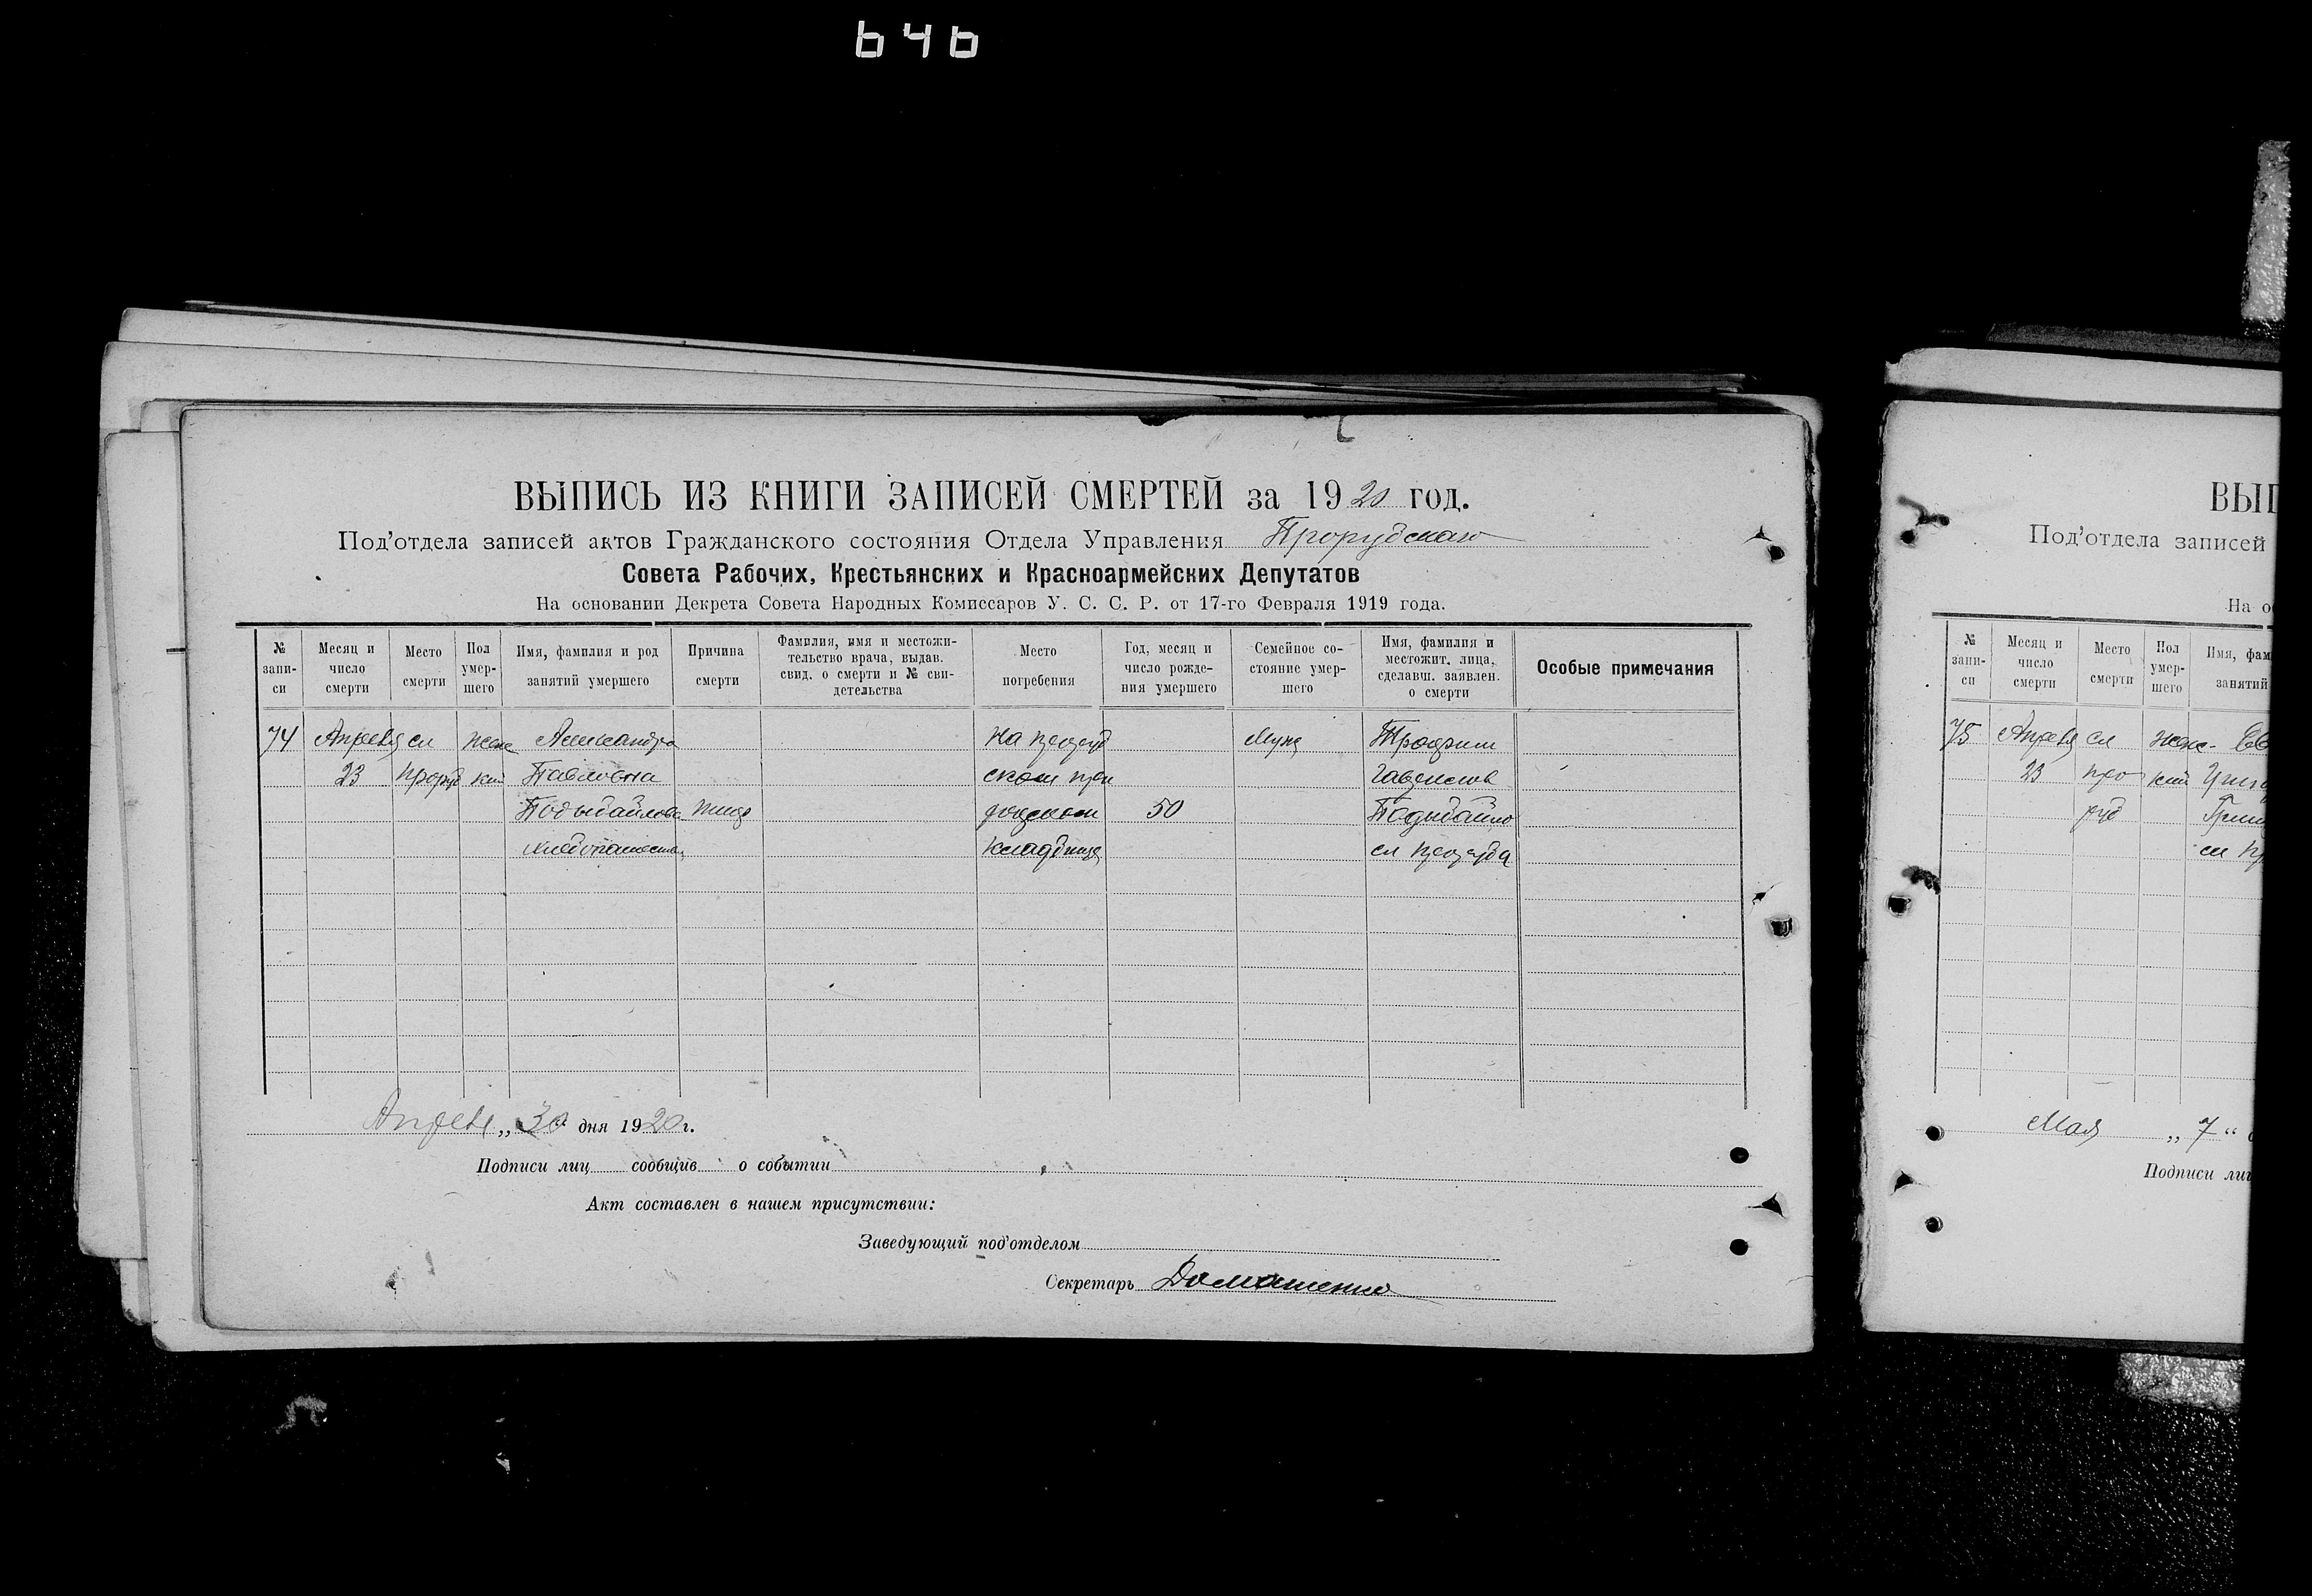 646
ВЫПИСЬ ИЗ КНИГИ ЗАПИСЕЙ СМЕРТЕЙ за 1920 год.
Под'отдела записей актов Гражданского состояния Отдела Управления Прорубского
Совета Рабочих, Крестьянских и Красноармейских Депутатов
На основании Декрета Совета Народных Комиссаров У. С. С. Р. от 17-го Февраля 1919 года.
№ запи-
си
Месяц и
число
смерти
Место
смерти
Пол
умер-
шего
Имя, фамилия и род
занятий умершего
Причина
смерти
Фамилия, имя и местожи-
тельство врача, выдав.
свид. о смерти и № сви-
детельства
Место
погребения
Год, месяц и
число рожде-
ния умершего
Семейное со-
стояние умер-
шего
Имя, фамилия и
местожит. лица,
сделавш. заявлен.
о смерти
Особые примечания
74 Апреля сл женс Александра На Проруб Трофим
23 Проруб кий Павловна ском
50
кладбище сл Проруба
Апреля „ 30 дня 1920 г.
Подписи лиц сообщив о событии
Акт составлен в нашем присутствии:
Заведующий под'отделом
Секретарь Домашенко
ВЫП
Под'отдела записей
На ос
№
запи-
си
Месяц и
число
смерти
Место
смерти
Пол
умер-
шего
Имя, фам
занятий
75 Апреля сл женс-
23 про кий
руб
сл Пр
Мая „ 7 “
Подписи лиц